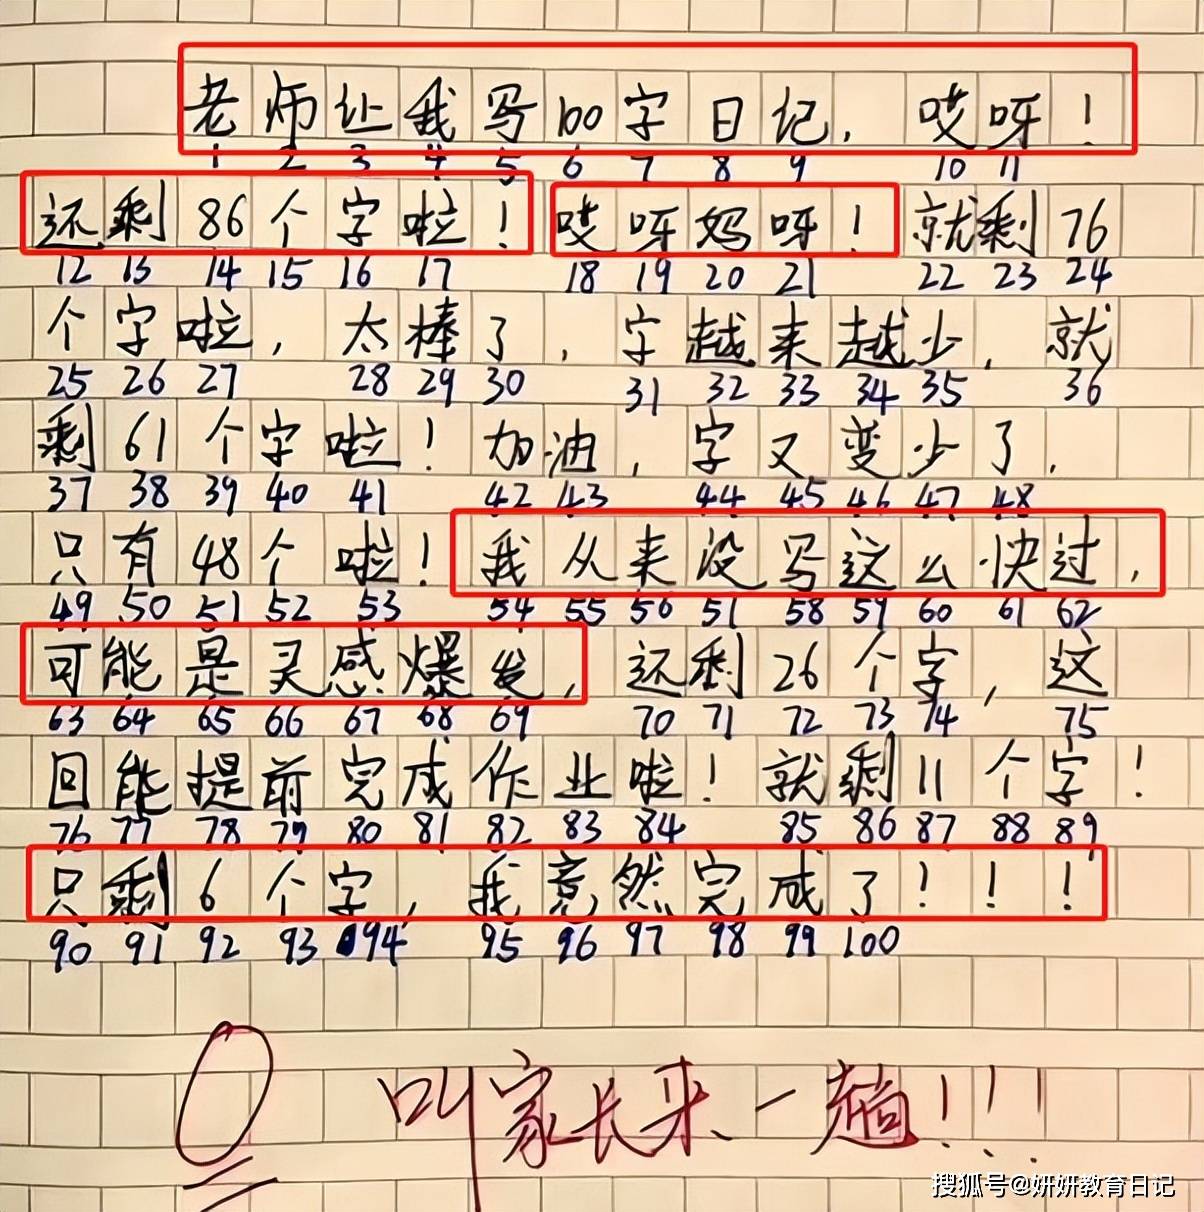 老师让我写100字日记，哎呀！
1 2 3 4 5 6 7 8 9 10 11
还剩86个字啦！哎呀妈呀！就剩76
12 13 14 15 16 17 18 19 20 21 22 23 24
个字啦，太棒了，字越来越少，就
25 26 27 28 29 30 31 32 33 34 35 36
剩61个字啦！加油，字又变少了，
37 38 39 40 41 42 43 44 45 46 47 48
只有48个啦！我从来没写这么快过，
49 50 51 52 53 54 55 56 51 58 59 60 61 62
可能是灵感爆发，还剩26个字，这
63 64 65 66 67 68 69 70 71 72 73 74 75
回能提前完成作业啦！就剩11个字！
76 77 78 79 80 81 82 83 84 85 86 87 88 89
只剩6个字，我竟然完成了！！！
90 91 92 93 94 95 96 97 98 99 100
0 叫家长来一趟！！！
搜狐号@妍妍教育日记